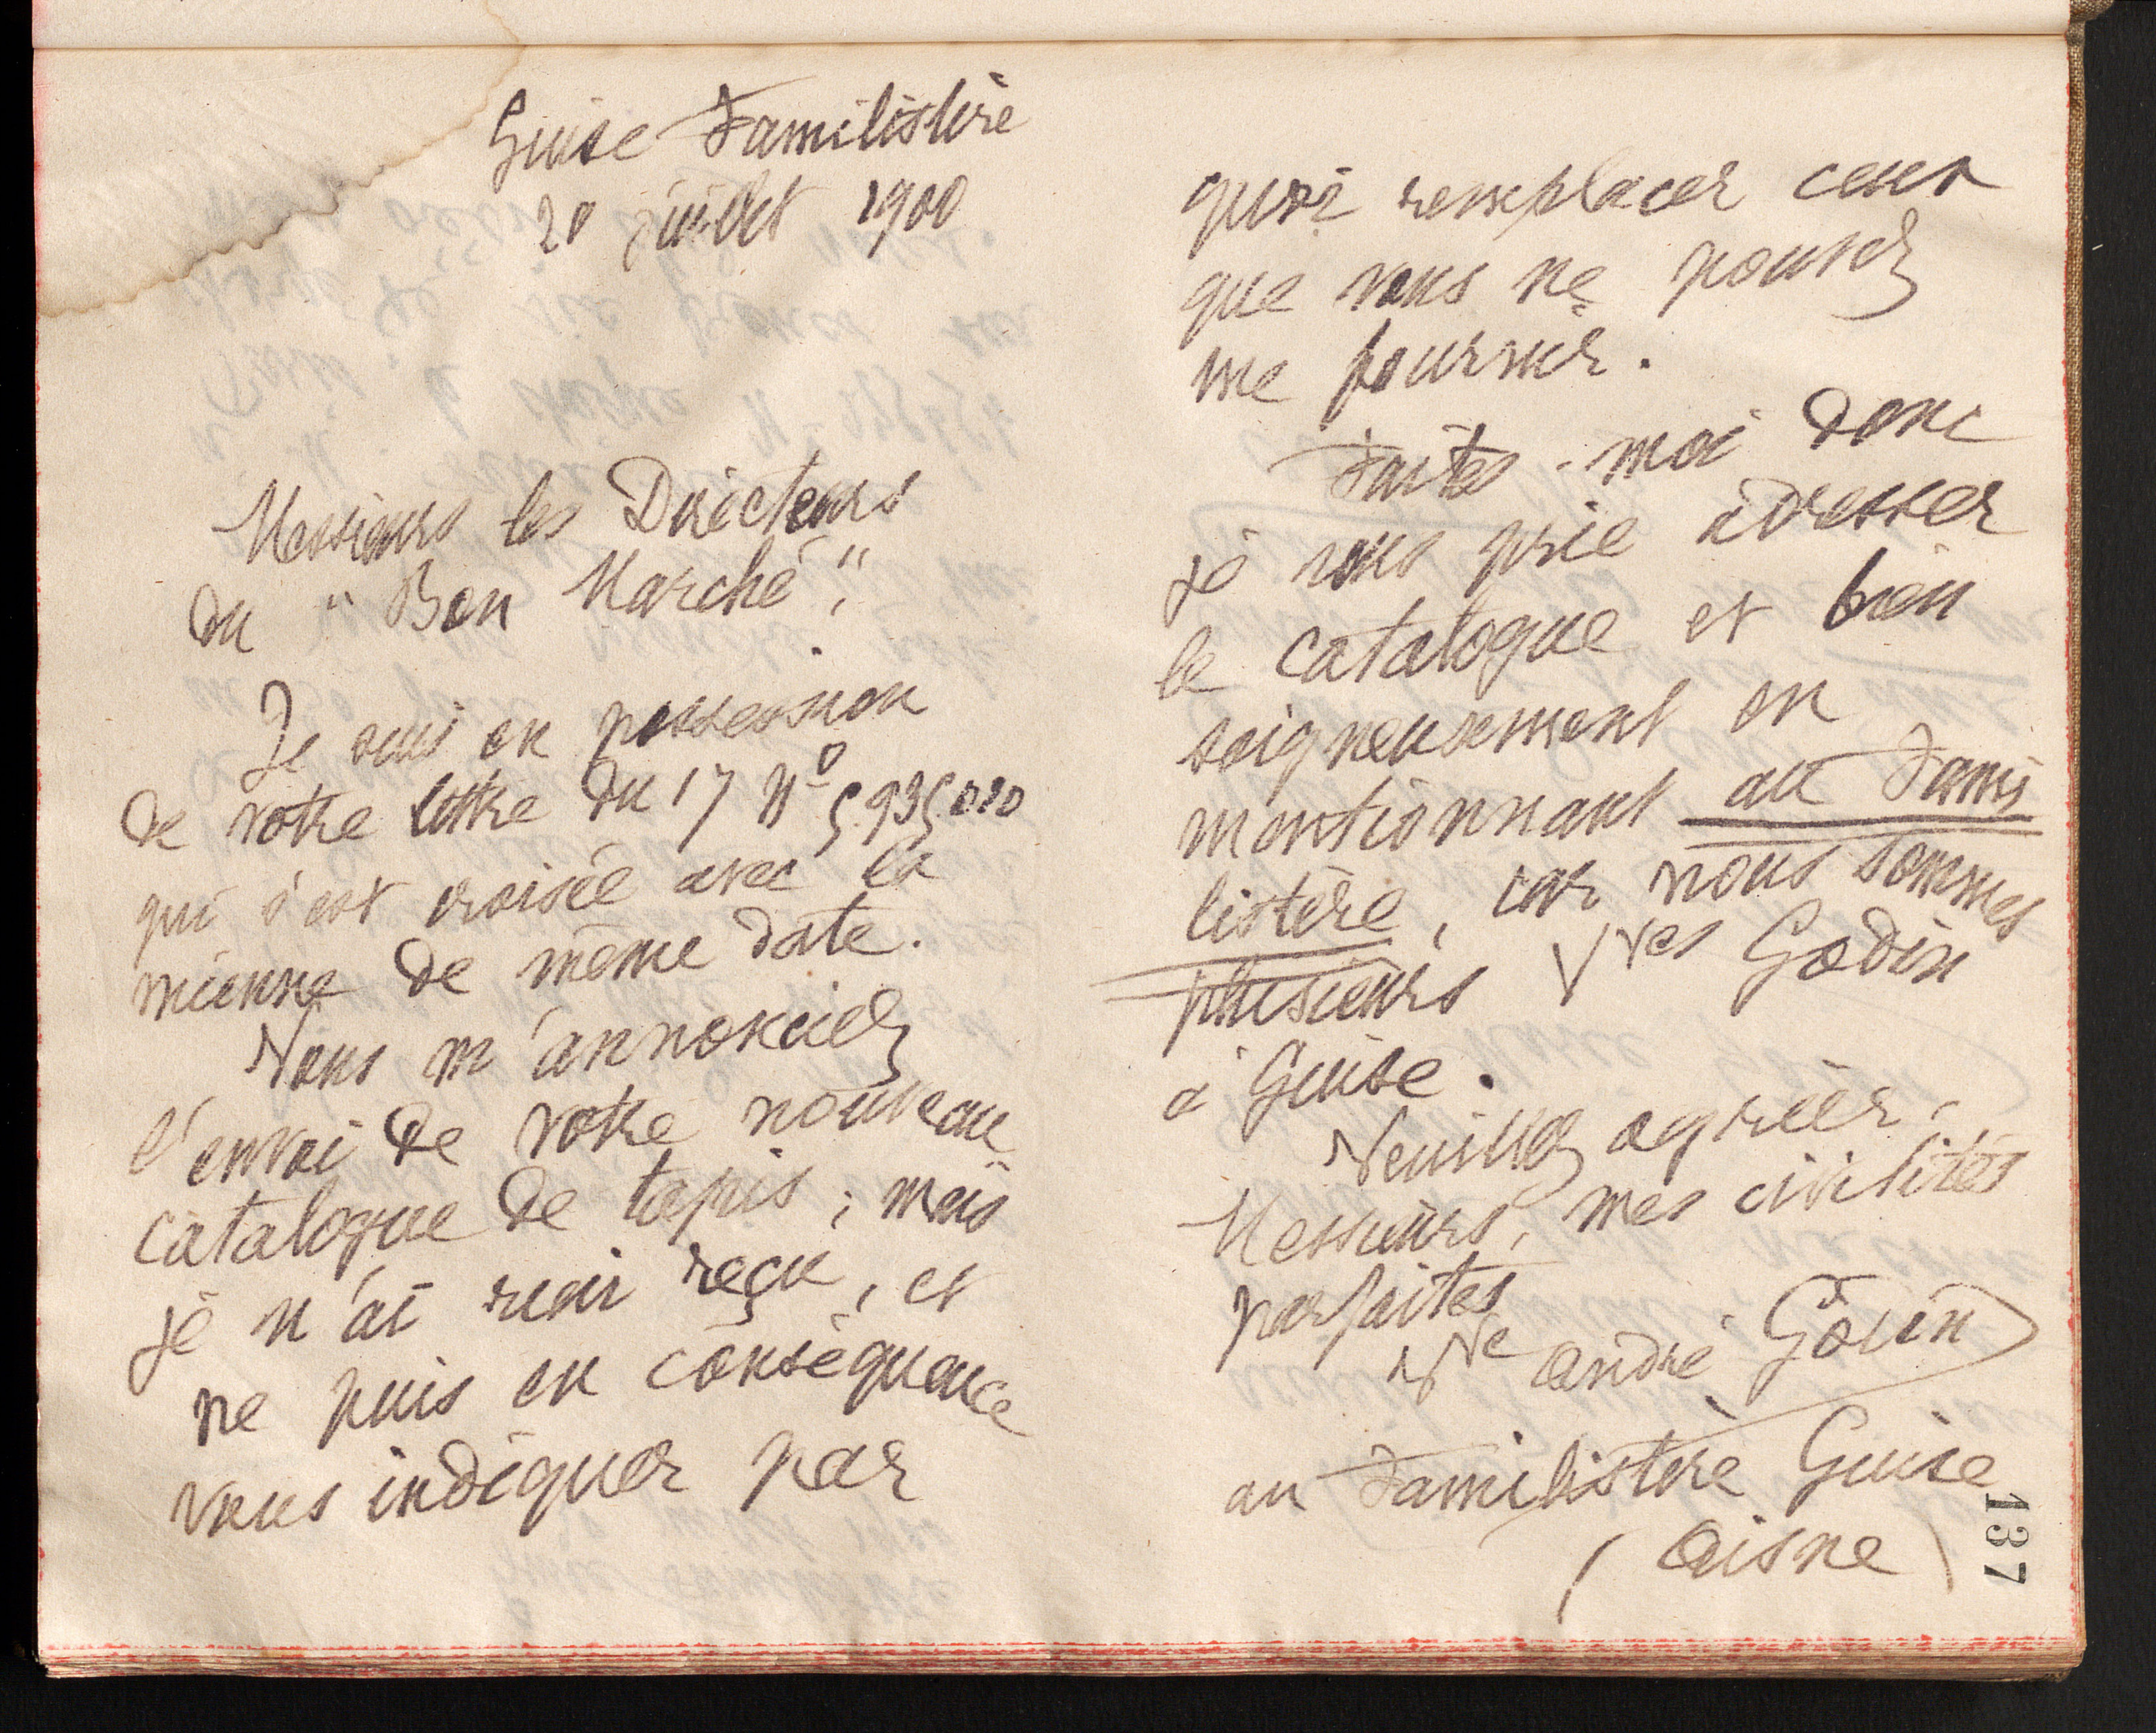 Guise Familistère
20 juillet 1900
Messieurs les Directeurs
du "Bon Marché",
Je suis en possession
de votre lettre du 17 No 5935020
qui s'est croisée avec la
mienne de même date.
Vous m'annonciez
l'envoi de votre nouveau
catalogue de tapis ; mais
je n'ai rien reçu, et
ne puis en conséquence
vous indiquer par
quoi remplacer ceux
que vous ne pouvez
me fournir.
Faites-moi donc
je vous prie adresser
le catalogue et bien
soigneusement en
mentionnant au Fami
listère, car nous sommes
plusieurs Vves Godin
à Guise.
Veuillez agréer,
Messieurs, mes civilités
parfaites
Vve André Godin
au Familistère Guise
(Aisne)
137